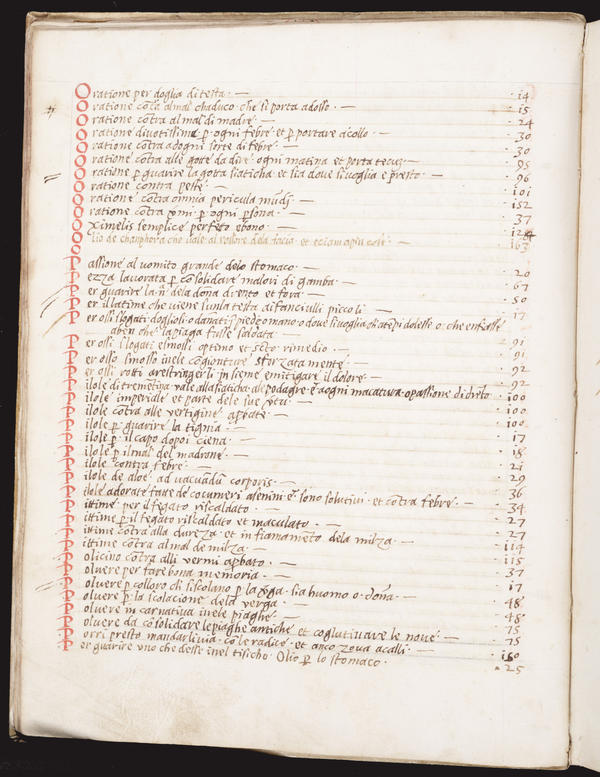 Oratione per doglia di testa · — · 14
Oratione cōtra al mal chaduco che si porta adosso · — · 15
Oratione contra al mal di madre · — · 24
Oratione divotissima p ogni febre et p portare acollo · — · 30
Oratione cōtra adogni sorte di febre · — · 30
Oratione cōtra alle gote da dire ogni matina et porta tecu · 95
Oratiene p guarire la gotta siaticha et sia dove si voglia e presto · — · 96
Oratione contra peste · — · 101
Oratione cōtra omnia pericula mundj · — · 152
Oratione cōtra p ogni psona · — · 37
Oximelis semplice perfeto e bono · — · 124
Olio de chanphora che vale al rossore dela facia et · 163
Passione al vomito grande delo stomaco · — · 20
Pezza lavorata p cōsolidare malori di gamba · — · 67
Per guarire la dela dōna drento et fora · — · 50
Per il latime che viene sula testa di fanciulli piccoli — · 17
Per ossi slogati doglioli o dānati piede o mano o dove si voglia o che enfiasse
aben che la piaga fusse saldata · 91
Per ossi slogati e smossi optimo et rimedio · — · 91
Per osso smosso inele cōgionture sforzatamente — · 92
Per ossi rotti arestringerli insieme emitigare il dolore · — · 92
Pilole di tremetina vale alla siaticha ale podagre ogni macatura o passione di dreto · 100
Pilole imperiale et parte dele sue vtu · — · 100
Pilole cōtra alle vertigine apbate · — · 100
Pilole p guarire la tignia · — · 17
Pilole p il capo dopoi ciena · — · 18
Pilole p il mal del madrone · — · 21
Pilole contra febre · — · 29
Pilole de aloe ad vacuādū corporis · — · 36
Pilole adorate fatte de cocumeri asenini sono solutivi et cōtra febre · — · 34
Pittima per il fegato riscaldato · — · 27
Pittime p il fegato riscaldato et maculato · — · 27
Pittime cōtra alla dureza et infiamameto dela milza · — · 114
Pittime cōtra al mal de milza · — · 115
Policino cōtra alli vermi apbato · — · 37
Polvere per fare bona memoria · — · 17
Polvere p colloro ch si scolano p la vga sia huomo o dōna · — · 48
Polvere p la scolacione dela verga · — · 48
Polvere incarnativa inele piaghe — · 75
Polvere da cōsolidare le piaghe antiche et coglutivare le nove · — · 75
Porri presto mandarli via co le radice et anco zova a calli · — · 160
Per guarire uno che desse inel tisicho · Olio p lo stomaco · · 25